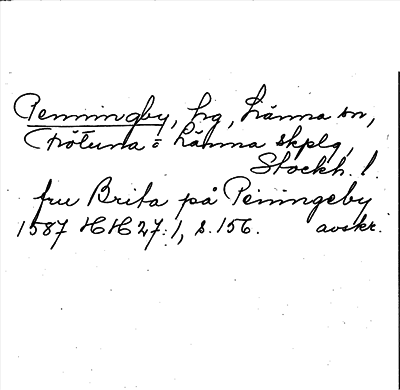 Penningby, hg, Länna sn,
Frötuna = Länna skplg,
Stockh. l.
fru Brita på Peningeby
1587 HH 27:1, s. 156. avskr.